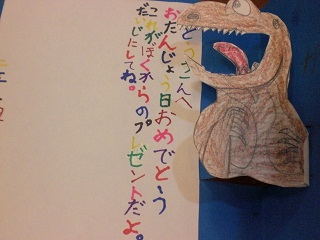 とうさんへ
おたんじょう日おめでとう
これがぼくからのプレゼントだよ。
だいじにしてね。